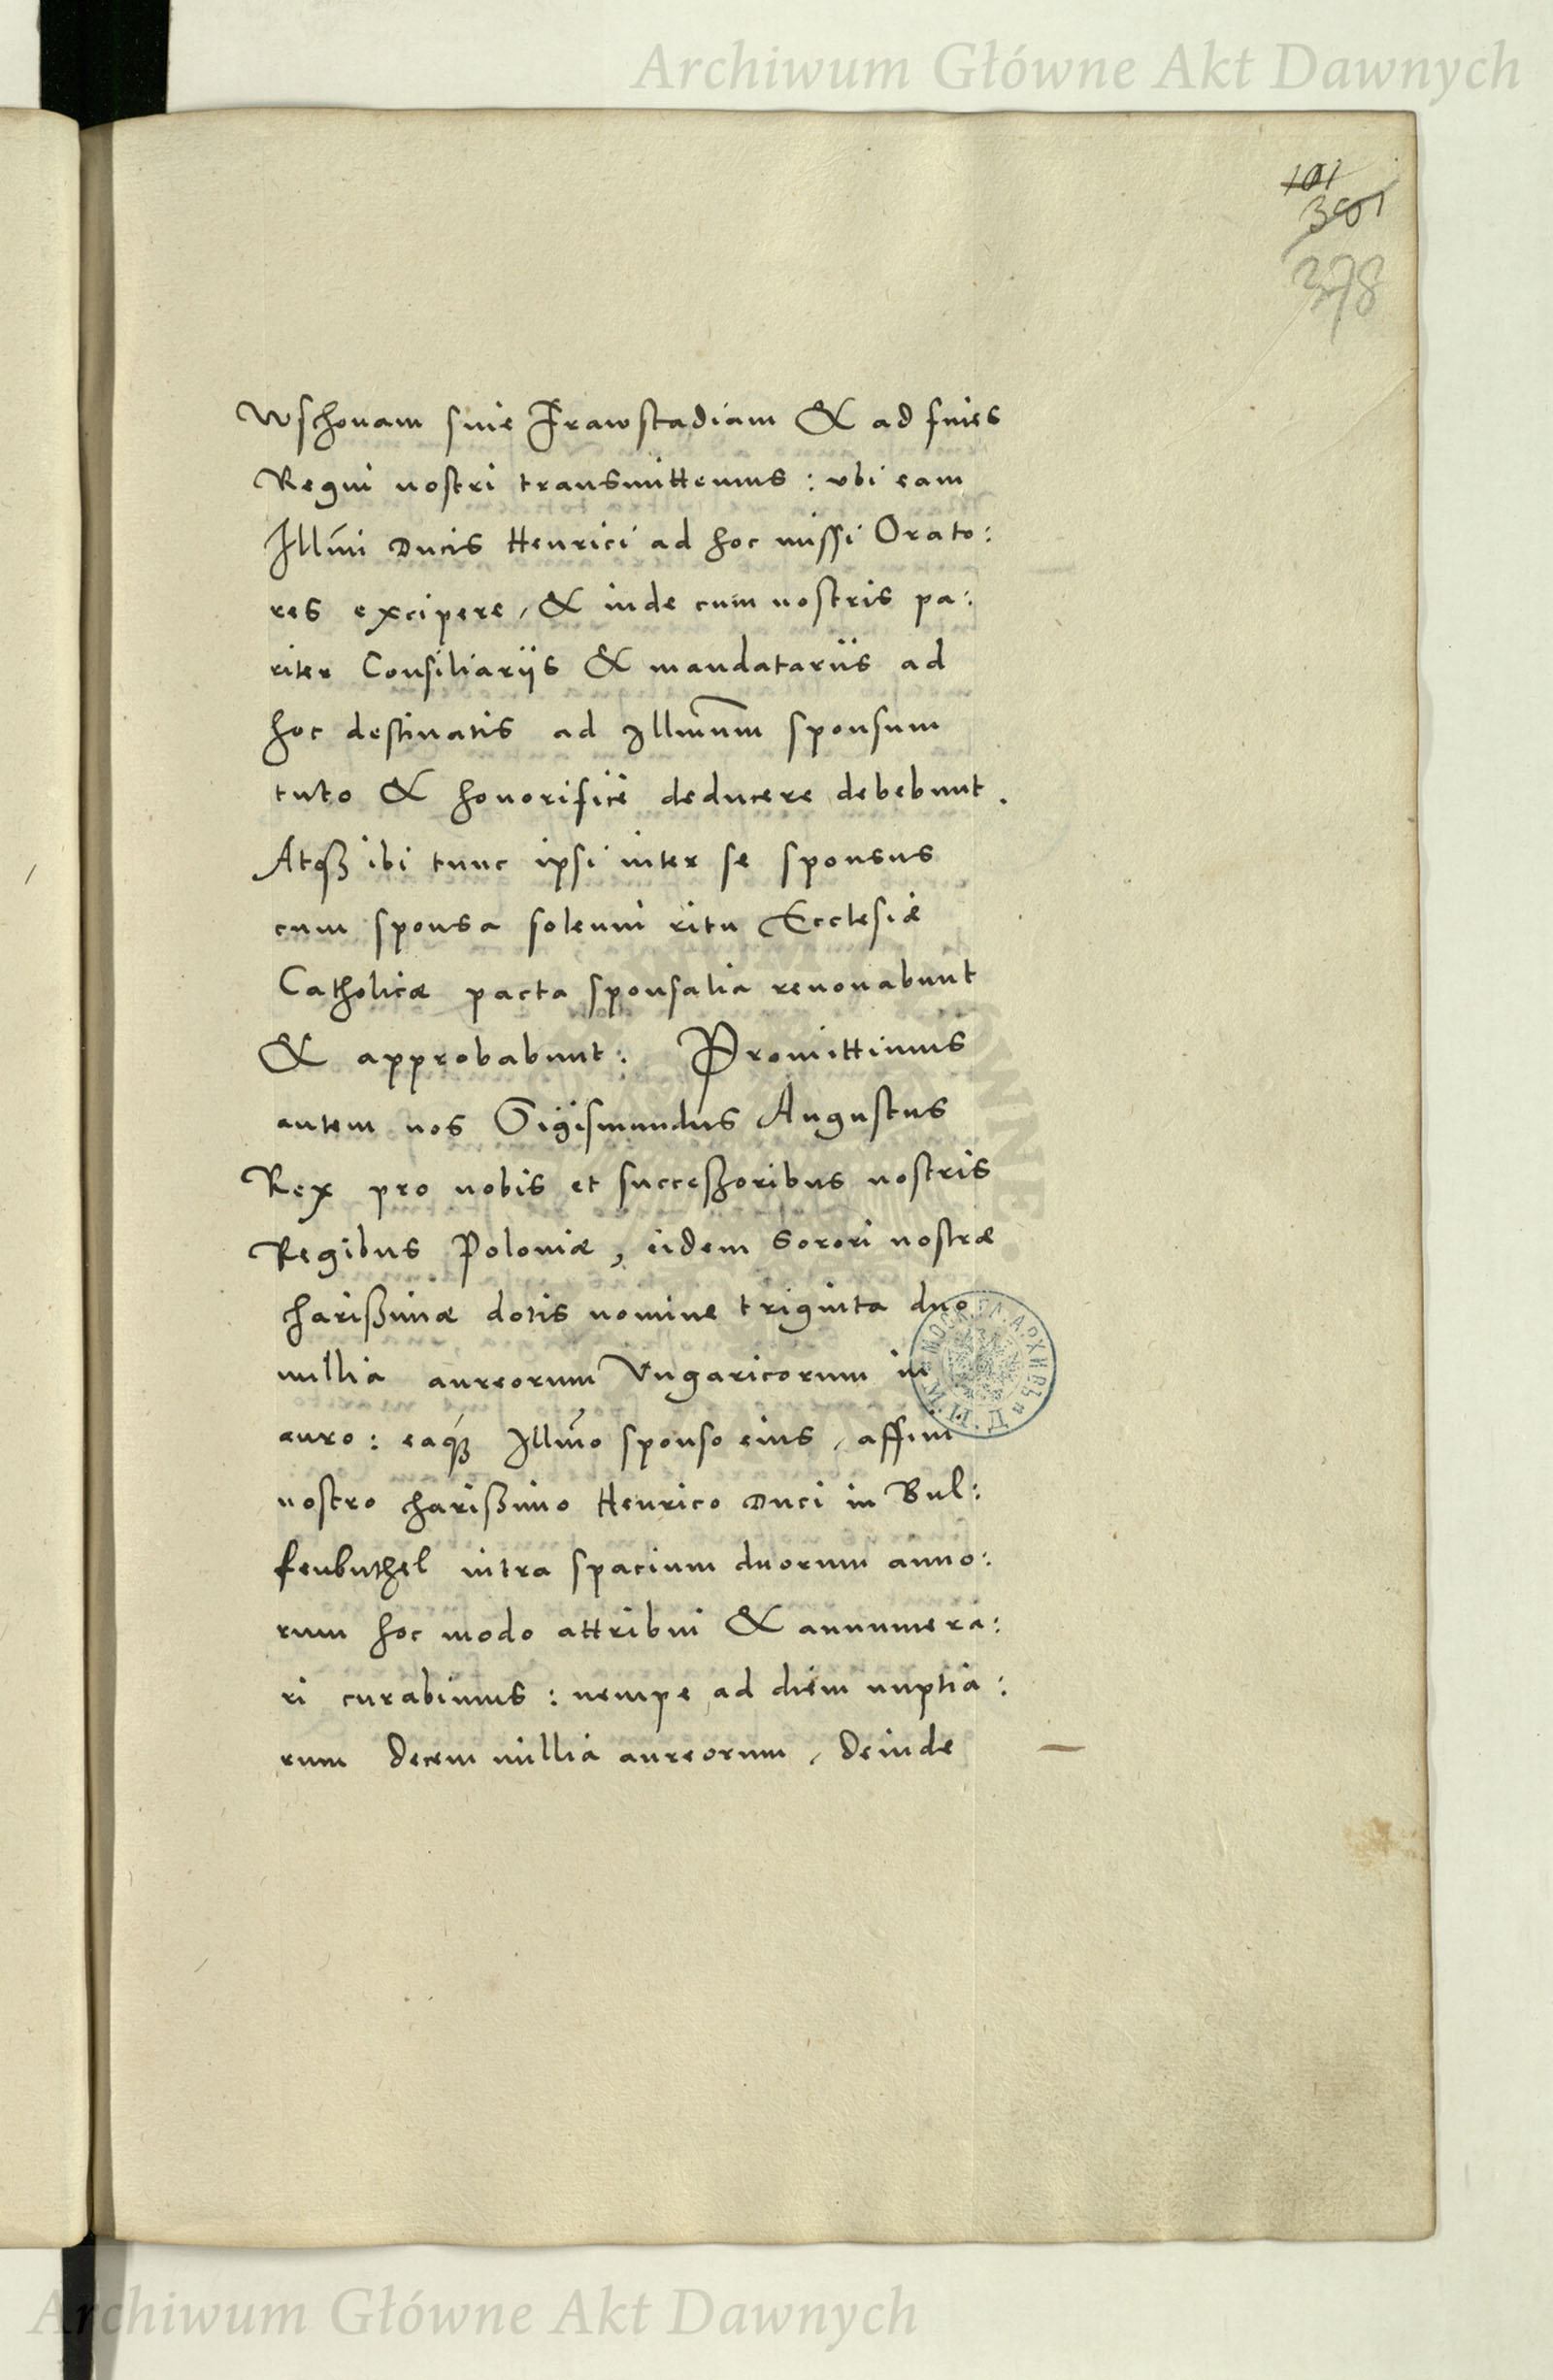 Archiwum Główne Akt Dawnych
101
301
378
Wschouam siue Frawstadiam & ad fines
Regni nostri transmittemus : vbi eam
Illmi Ducis Henrici ad hoc missi Orato:
res excipere, & inde cum nostris pa:
riter Consiliarijs & mandatarijs ad
hoc destinatis ad Illmum sponsum
tuto & honorifice deducere debebunt.
Atqȝ ibi tunc ipsi inter se sponsus
cum sponsa solenni ritu Ecclesiæ
Catholicæ pacta sponsalia renouabunt
& approbabunt: Promittimus
autem nos Sigismundus Augustus
Rex pro nobis et successoribus nostris
Regibus Poloniæ, eidem Sorori nostræ
charißimæ dotis nomine triginta duo
millia aureorum Vngaricorum in
auro : eaqȝ Illmo sponso eius, affini
nostro charißimo Henrico Duci in Bul:
fenbuthel intra spacium duorum anno:
rum hoc modo attribui & annumera:
ri curabimus : nempe ad diem nuptia:
rum Decem millia aureorum, Deinde
Archiwum Główne Akt Dawnych